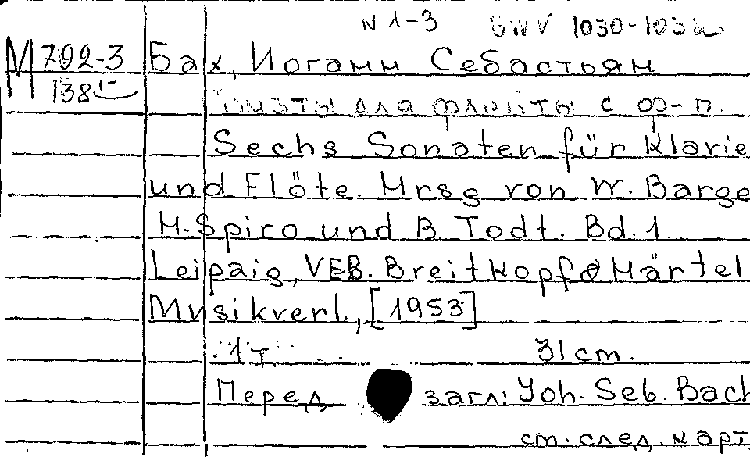 N 1-3 BWV 1030-1032
М 702-3 Бах, Иоганн Себастьян
1381
для флейты с ф-п.
Sechs Sonaten für Klavie
und Flöte. Hrsg von W. Barge
H. Spiro und B. Todt. Bd. 1
Leipzig, VEB. Breitkopf & Härtel
Musikverl., [1953]
1 т 31 cm.
Перед загл: Joh. Seb. Bach
см. след. карт